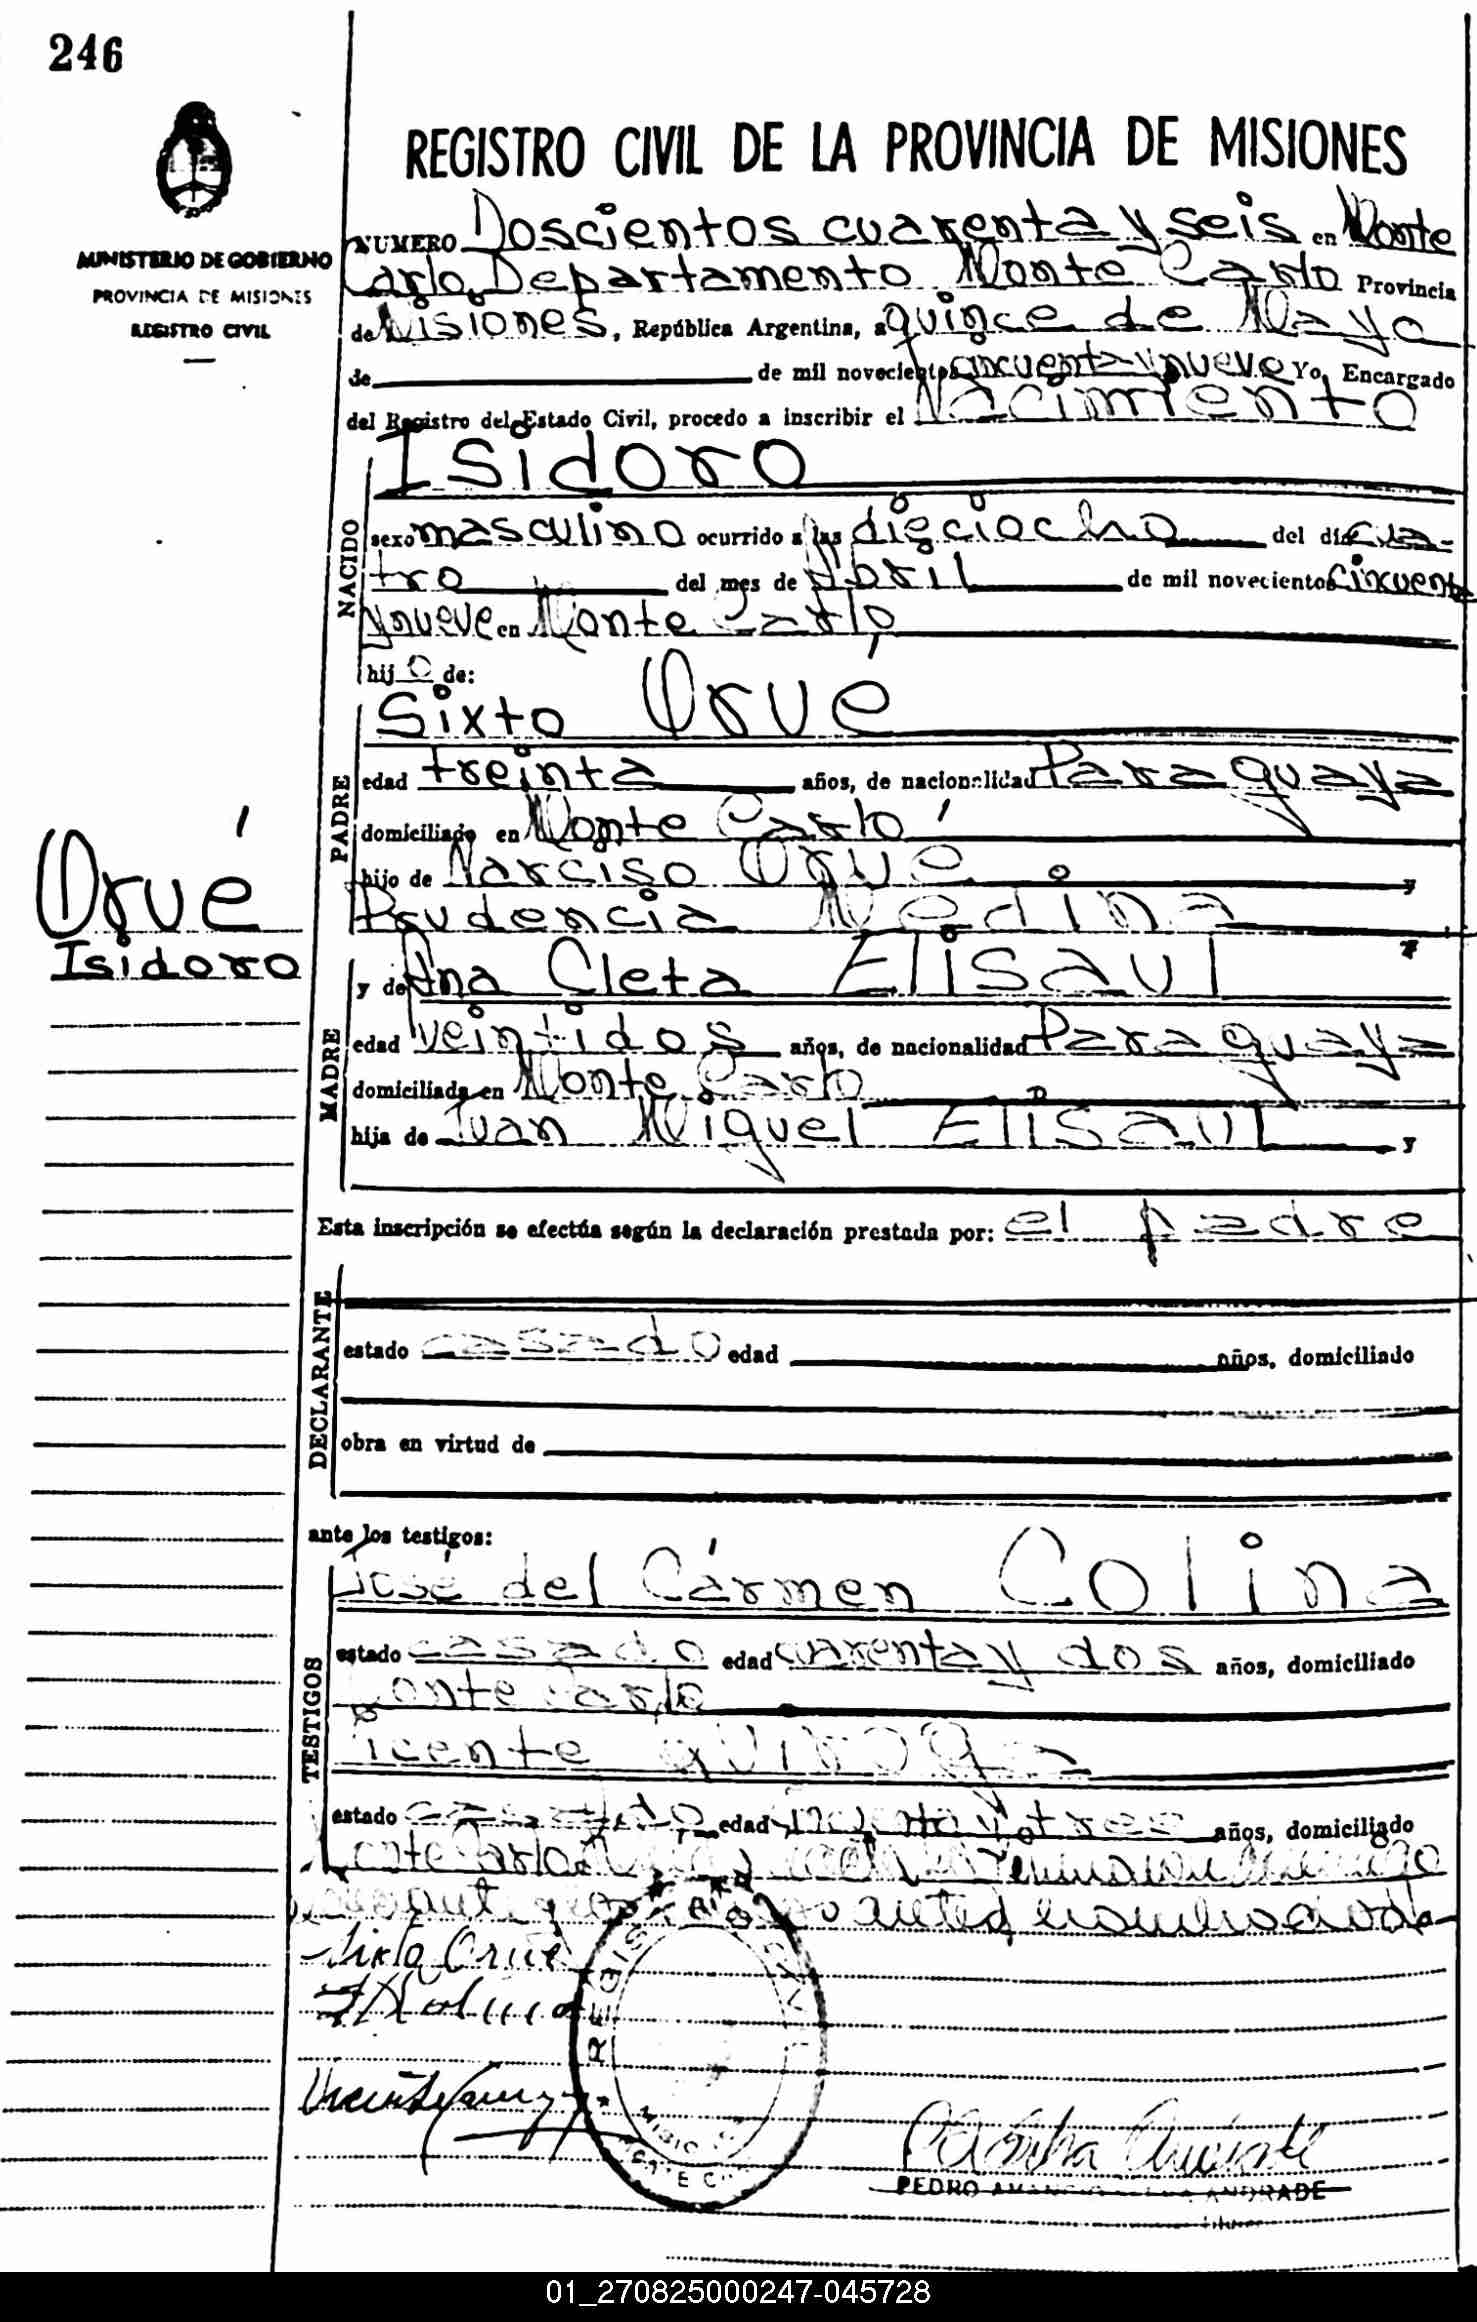 246
REGISTRO CIVIL DE LA PROVINCIA DE MISIONES
MINISTERIO DE GOBIERNO
PROVINCIA DE MISIONES
REGISTRO CIVIL
NUMERO Doscientos cuarenta y seis en Monte
Carlo, Departamento Monte Carlo Provincia
de Misiones, República Argentina, a quince de Mayo
de de mil novecientos cincuenta y nueve Yo, Encargado
del Registro del Estado Civil, procedo a inscribir el Nacimiento
NACIDO
Isidoro
sexo masculino ocurrido a las dieciocho del día cua-
tro del mes de Abril de mil novecientos cincuenta
y nueve en Monte Carlo
hijo de:
PADRE
Sixto Orué
edad treinta años, de nacionalidad Paraguaya
domiciliado en Monte Carlo
hijo de Narciso Orué y
Prudencia Medina
Orué
Isidoro
MADRE
y de Ana Cleta Elisaul
edad veintidos años, de nacionalidad Paraguaya
domiciliada en Monte Carlo
hija de Juan Miguel Elisaul y
Esta inscripción se efectúa según la declaración prestada por: el padre
DECLARANTE
estado casado edad años, domiciliado
obra en virtud de
ante los testigos:
TESTIGOS
José del Cármen Colina
estado casado edad cuarenta y dos años, domiciliado
Monte Carlo
Vicente Quiroga
estado casado edad y tres años, domiciliado
Monte Carlo
Sixto Orué
REGISTRO CIVIL
MONTE CARLO
PEDRO ANDRADE
01_270825000247-045728